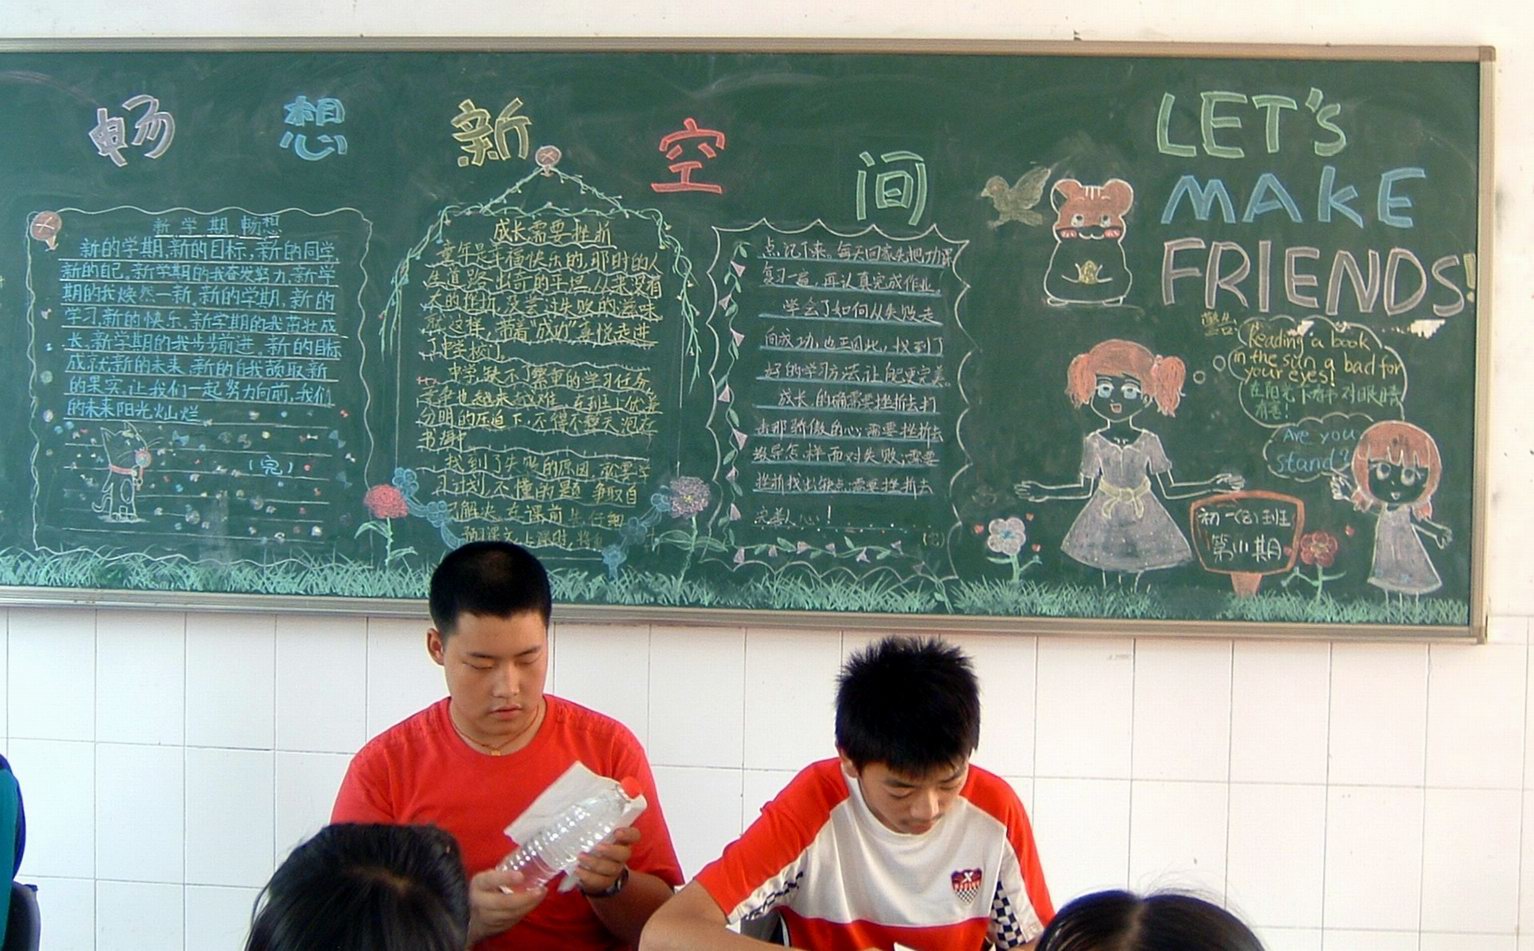 畅想新空间
新学期畅想
新的学期,新的目标,新的同学
新的自己。新学期的我奋发努力,新学
期的我焕然一新,新的学期,新的
学习,新的快乐,新学期的我茁壮成
长,新学期的我步步前进。新的目标
成就新的未来,新的自我颉取新
的果实,让我们一起努力向前,我们
的未来阳光灿烂
(完)
成长需要挫折
童年是幸福快乐的,那时的人
生道路出奇的平坦,从来没有
大的挫折,没尝过失败的滋味
就这样,带着"成功"喜悦走进
了中学校门。
中学,缺不了繁重的学习任务,
分明的压迫下,不得不整天泡在
书海中
找到了失败的原因,就要学
习计划,不懂的题 争取自
己解决,在课前先仔细
预课文,上课时,将重
点记下来。每天回家先把功课
复习一遍,再认真完成作业。
学会了如何从失败走
向成功,也正因此,找到了
好的学习方法,让自己更完美。
成长,的确需要挫折去打
击那骄傲的心;需要挫折去
教导怎样面对失败;需要
挫折找出缺点;需要挫折去
完善人心!
(完)
LET'S
MAKE
FRIENDS!
警告:
Reading a book
in the sun a bad for
your eyes!
在阳光下看书对眼睛
有害!
Are you
stand?
初一(6)班
第111期